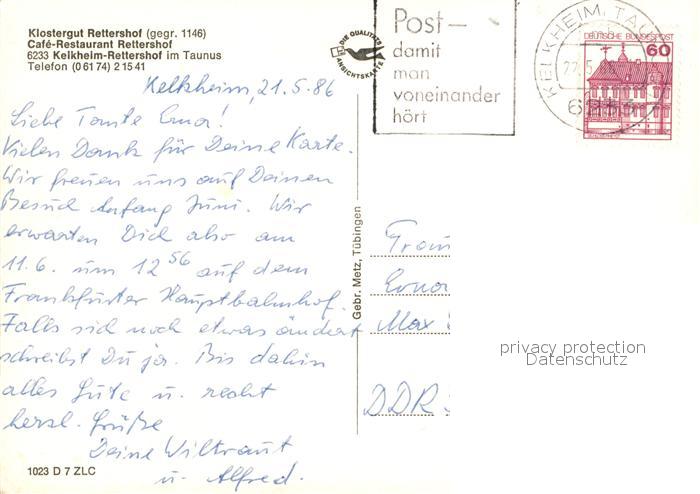 Klostergut Rettershof (gegr. 1146)
Café-Restaurant Rettershof
6233 Kelkheim-Rettershof im Taunus
Telefon (0 61 74) 2 15 41
DIE QUALITÄTS
ANSICHTSKARTE
Post-
damit
man
voneinander
hört
KELKHEIM, TAU
DEUTSCHE BUNDESPOST
60
Kelkheim, 21.5.86
Liebe Tante Erna!
Vielen Dank für Deine Karte.
Wir freuen uns auf Deinen
Besuch Anfang Juni. Wir
erwarten Dich also am
11.6. um 12 56 auf dem
Frankfurter Hauptbahnhof.
Falls sich noch etwas ändert
schreibst Du ja. Bis dahin
alles Gute u. recht
herzl. Grüße
Deine Wiltraut
u. Alfred.
Gebr. Metz, Tübingen
Frau
Erna
Max
DDR
privacy protection
Datenschutz
1023 D 7 ZLC